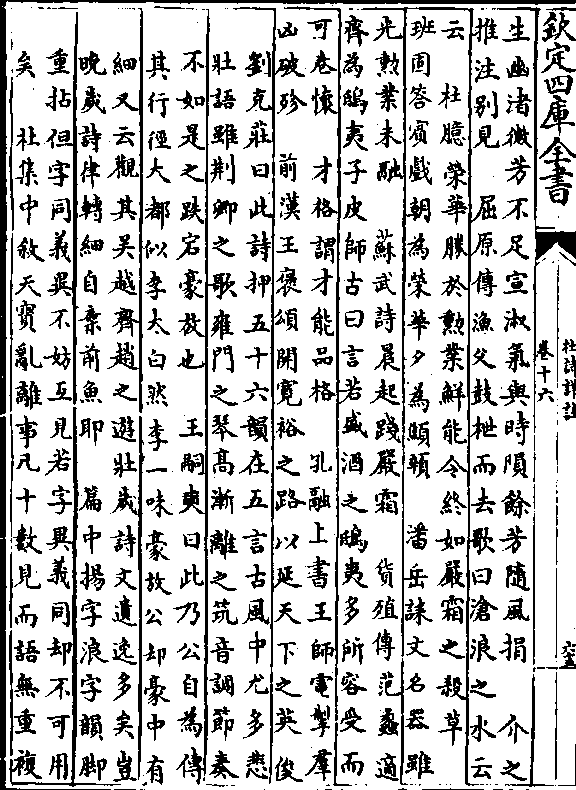 欽定四庫全書
杜詩詳註
卷十六
生幽渚微芳不足宣淑氣與時隕餘芳隨風捐　介之
推注别見　屈原傳漁父鼓枻而去歌曰滄浪之水云
云　杜臆榮華勝於勲業鮮能令終如嚴霜之殺草
班固答賓戲朝為榮華夕為顦顇　潘岳誄文名器雖
光勲業未融　蘇武詩晨起踐嚴霜　貨殖傳范蠡適
齊為鴟夷子皮師古曰言若盛酒之鴟夷多所容受而
可卷懷　才格謂才能品格　孔融上書王師電掣羣
凶破殄　前漢王褒頌開寛裕之路以延天下之英俊
劉克莊曰此詩押五十六韻在五言古風中尤多悲
壯語雖荆卿之歌雍門之琴髙漸離之筑音調節奏
不如是之跌宕豪放也　王嗣奭曰此乃公自為傳
其行徑大都似李太白然李一味豪放公却豪中有
細又云觀其吴越齊趙之遊壯歲詩文遺逸多矣豈
晚歲詩律轉細自棄前魚耶　篇中揚字浪字韻脚
重拈但字同義異不妨互見若字異義同却不可用
矣　杜集中敘天寳亂離事凡十數見而語無重複